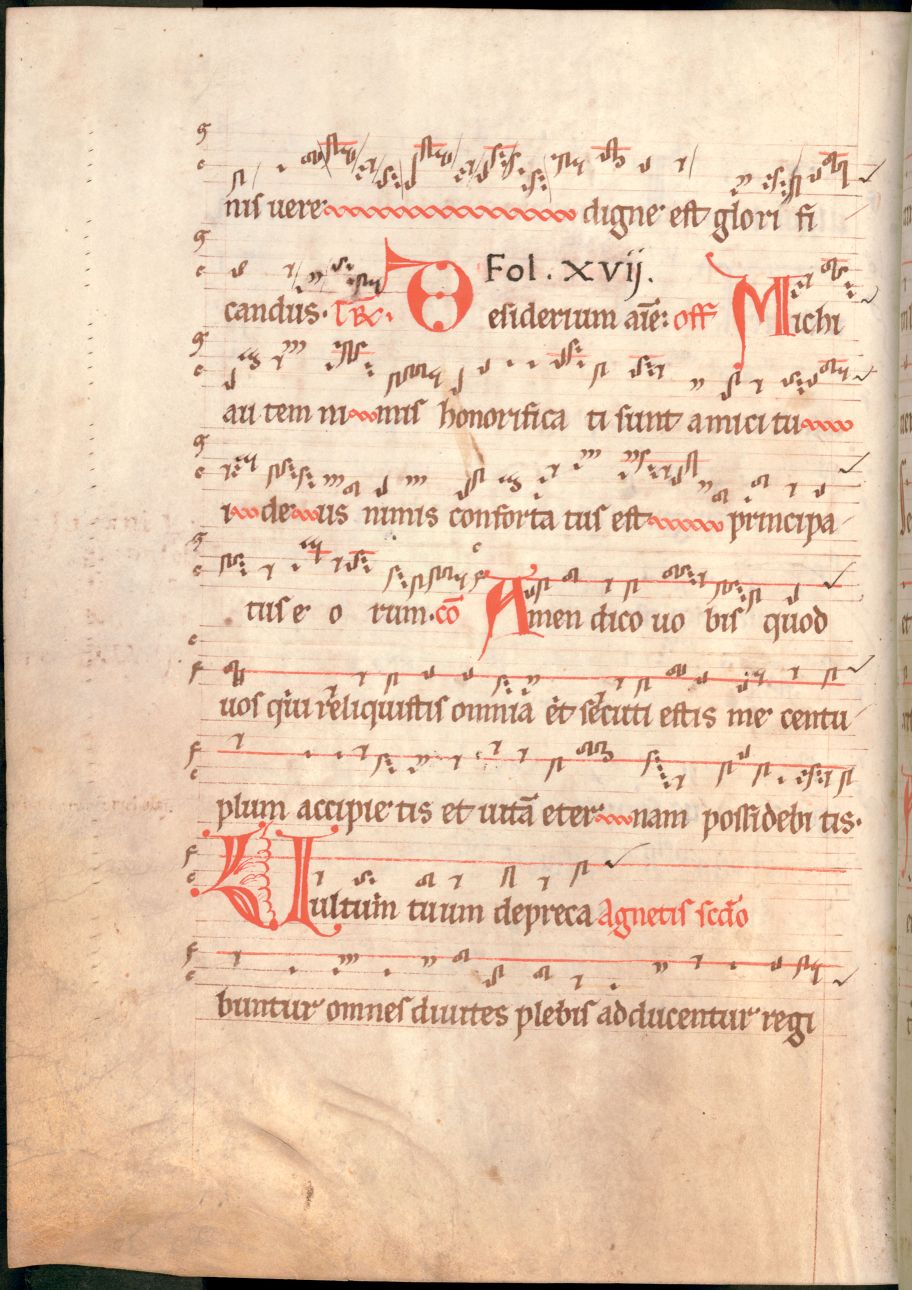 nis uere digne est glori fi
candus. Tr̄. Desiderium aīe: off Michi
au tem ni mis honorifica ti sunt amici tu
i de us nimis conforta tus est principa
tus e o rum. cō Amen dico uo bis quod
uos qui reliquistis omnia et secuti estis me centu
plum accipie tis et uitā eter nam possidebi tis.
Uultum tuum depreca Agnetis scd̄o
buntur omnes diuites plebis adducentur regi
Fol. xvij.